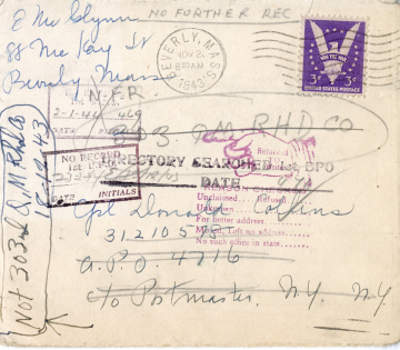 E McGlynn
88 McKay St
Beverly Mass
NO FURTHER REC
BEVERLY, MASS.
NOV 2-
8 30 AM
1943
WIN THE WAR
3¢ 3¢
UNITED STATES POSTAGE
N-F-R
2-1-44 469
DATE
303 QM RHD CO
NO RECORD
1st B.P.O.
DATE INITIALS
DIRECTORY SEARCHED 1st BPO
DATE
Returned
REASON CHECKED
Unclaimed Refused
Unknown
For better address
Moved, Left no address
No such office in state
Cpl Donald Collins
31210575
A.P.O. 4716
c/o Postmaster, N.Y. N.Y.
Not 303d Q M Rhd Co